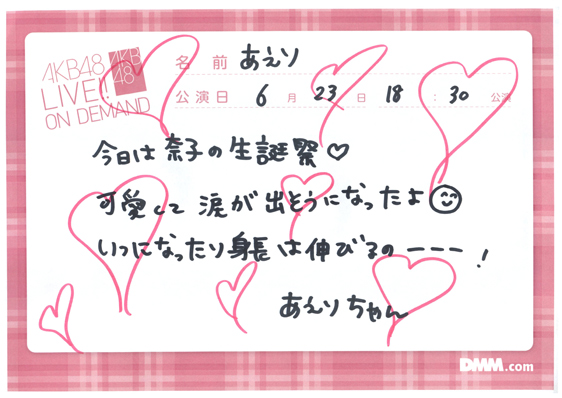 AKB48
LIVE!!
ON DEMAND
AKB48
名前 あえり
公演日 6月23日 18:30公演
今日は奈子の生誕祭♡
可愛くて 涙が出そうになったよ😊
いつになったり身長は伸びるのーーー!
あえりちゃん
DMM.com